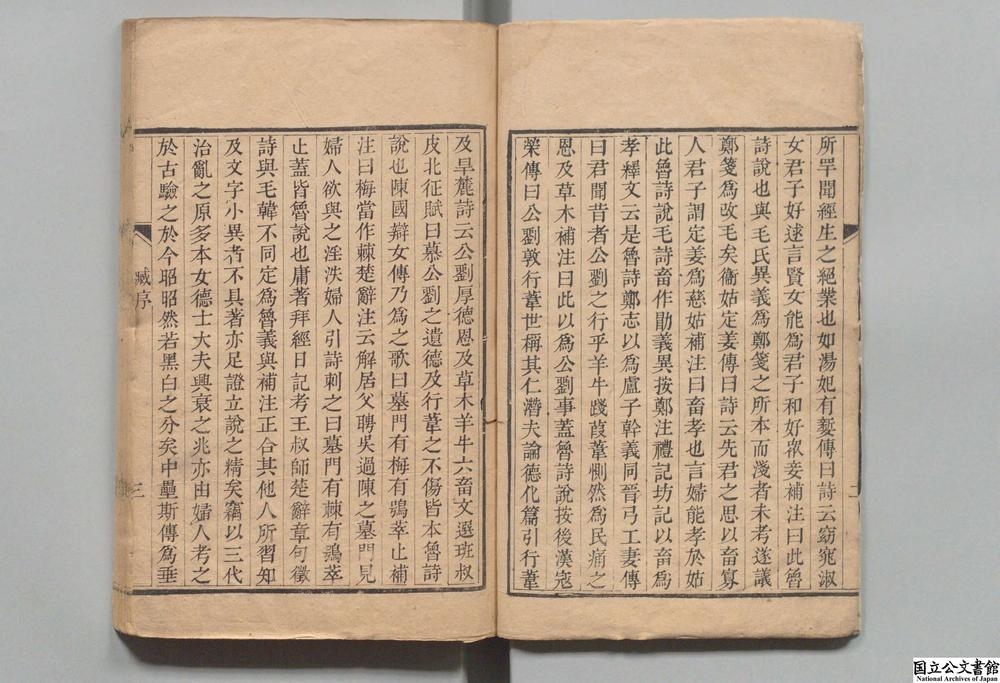 所罕聞經生之絕業也如湯妃有㜪傳曰詩云窈窕淑
女君子好逑言賢女能爲君子和好衆妾補注曰此魯
詩說也與毛氏異義爲鄭箋之所本而淺者未考遂議
鄭箋爲改毛矣衞姑定姜傳曰詩云先君之思以畜寡
人君子謂定姜爲慈姑補注曰畜孝也言婦能孝於姑
此魯詩說毛詩畜作勖義異按鄭注禮記坊記以畜爲
孝釋文云是魯詩鄭志以爲盧子幹義同晉弓工妻傳
曰君聞昔者公劉之行乎羊牛踐葭葦惻然爲民痛之
恩及草木補注曰此以爲公劉事蓋魯詩說按後漢寇
榮傳曰公劉敦行葦世稱其仁潛夫論德化篇引行葦
二
及旱麓詩云公劉厚德恩及草木羊牛六畜文選班叔
皮北征賦曰慕公劉之遺德及行葦之不傷皆本魯詩
說也陳國辯女傳乃爲之歌曰墓門有梅有鴞萃止補
注曰梅當作棘楚辭注云解居父聘吳過陳之墓門見
婦人欲與之淫泆婦人引詩刺之曰墓門有棘有鴞萃
止蓋皆魯說也庸著拜經日記考王叔師楚辭章句徵
詩與毛韓不同定爲魯義與補注正合其他人所習知
及文字小異者不具著亦足證立說之精矣竊以三代
治亂之原多本女德士大夫興衰之兆亦由婦人考之
於古驗之於今昭昭然若黑白之分矣中壘斯傳爲垂
臧序
三
国立公文書館
National Archives of Japan